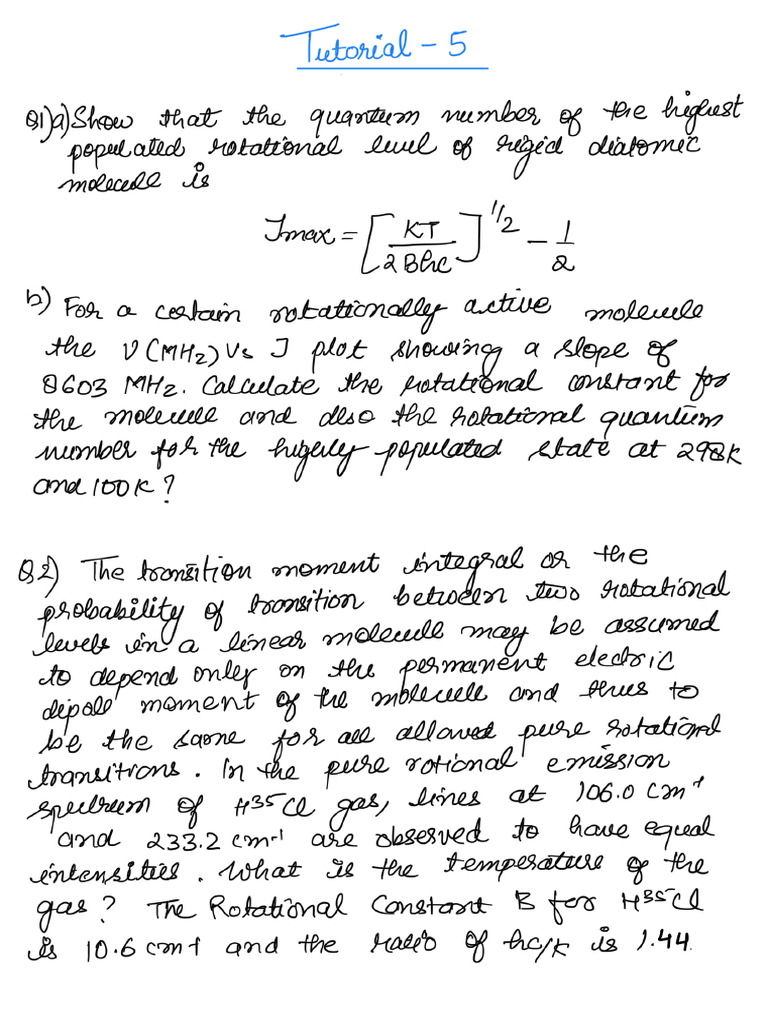 Tutorial - 5
Q1)a) Show that the quantum number of the highest
populated rotational level of rigid diatomic
molecule is
Jmax = [KT / 2Bhc]^1/2 - 1/2
b) For a certain rotationally active molecule
the ν (MHz) Vs J plot showing a slope of
8603 MHz. Calculate the rotational constant for
the molecule and also the rotational quantum
number for the highly populated state at 298K
and 100K?
Q2) The transition moment integral or the
probability of transition between two rotational
levels in a linear molecule may be assumed
to depend only on the permanent electric
dipole moment of the molecule and thus to
be the same for all allowed pure rotational
transitions. In the pure rotional emission
spectrum of H³⁵Cl gas, lines at 106.0 cm⁻¹
and 233.2 cm⁻¹ are observed to have equal
intensities. What is the temperature of the
gas? The Rotational Constant B for H³⁵Cl
is 10.6 cm-1 and the ratio of hc/k is 1.44.